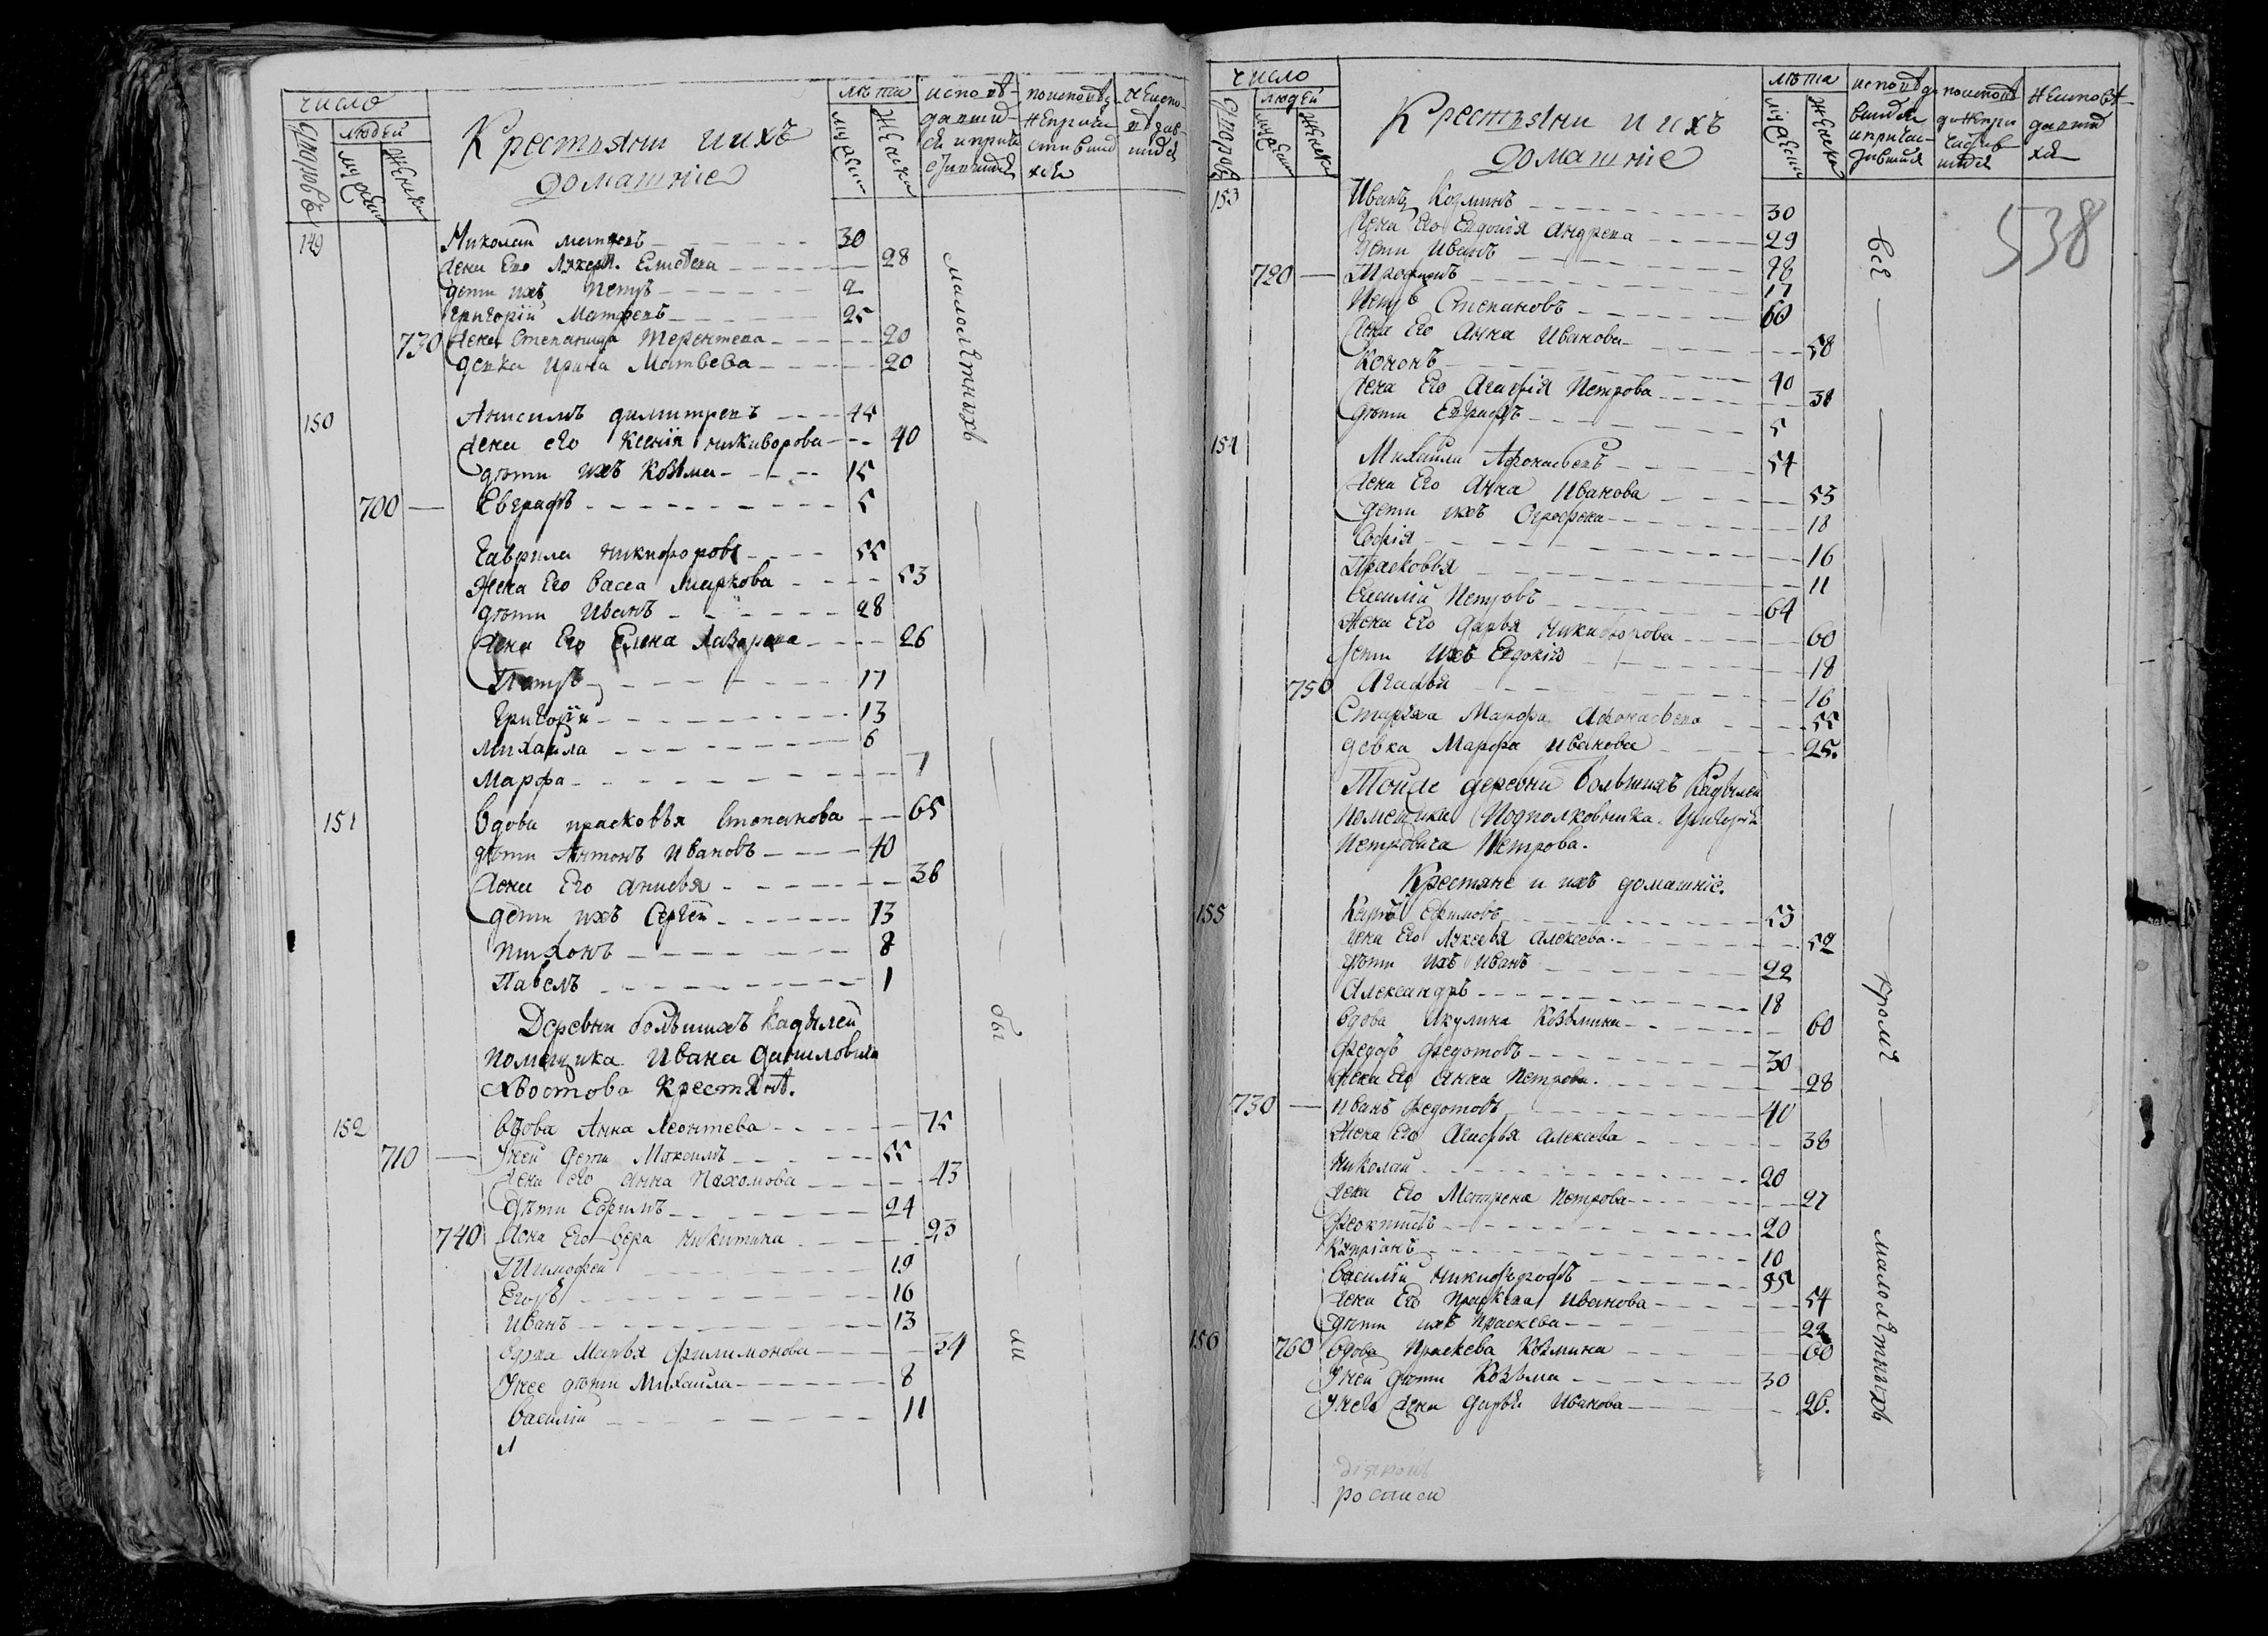 число
дворовъ
людей
мужеск
женска
Крестьяни и ихъ
домашніе
лѣта
мужеск
женска
исповѣ-
давши-
ся и прича
стившіеся
по исповѣд
не прича
стившіи
хся
не испо-
вѣдав-
шіися
149 Николай матвеевъ 30
жена Его 28
дети ихъ петръ 2
григорій Матвеевъ 25
730 жена Степанида Терентева 20
девка ирина Матвеева 20
150 Анисимъ димитревъ 44
жена его Ксенія никиворова 40
дѣти ихъ Козьма 15
700 Евграфъ 5
Гаврила никифоровъ 55
Жена Его васса Маркова 53
дѣти Иванъ 28
жена Его Елена Лазарева 26
Петръ 17
григорій 13
михайла 6
марфа 1
151 Вдова прасковья Степанова 65
дѣти Антонъ Ивановъ 40
жена Его анисья 38
дѣти ихъ Сергей 13
тихонъ 8
Павелъ 1
Деревни большихъ Кадылей
помещика Ивана даниловича
Хвостова крестьянѣ.
152 вдова Анна Леонтева 75
710 У ней дети Максимъ 55
жена его анна Пахомова 43
дѣти Ефримъ 24
740 Жена Его вера никитина 23
Тимофей 19
Егоръ 16
иванъ 13
вдова Марья филимонова 34
У нее дѣти Михайла 8
василій 11
малолѣтныхъ
бы
ли
число
дворовъ
людей
мужеск
женска
Крестьяни и ихъ
домашніе
лѣта
мужеск
женска
исповѣда
вшіися
и причас-
тившіися
по исповѣ
ди не при
частив
шіися
не исповѣ-
давши
хся
538
153 Иванъ Козминъ 30
жена Его Евдокія андреева 29
дети Иванъ
720 Трофимъ 17
Петръ Степановъ 60
жена Его Анна Иванова 58
Кононъ 40
жена Его Агафія Петрова 38
дѣти Евграфъ 5
154 Михайла Афонасьевъ 54
жена Его Анна Иванова 53
дети ихъ 18
Софія 16
Прасковья 11
василій Петровъ 64
Жена Его дарья никифорова 60
дети ихъ Евдокія 18
750 Агафья 16
Старуха Марфа Афонасьева 55
девка Марфа иванова 25.
Тойже деревни большихъ Кадылей
помещика Подполковника Григорія
Петровича Петрова.
Крестяне и ихъ домашніе.
155 Ефимовъ 53
жена Его Алексеева 52
дѣти ихъ иванъ 22
Александръ 18
вдова Акулина Козьмина 60
Федоръ Федотовъ 30
жена Его Анна Петрова 28
730 иванъ Федотовъ 40
Жена Его Агафья алексеева 38
николай 20
жена Его Матрена петрова 27
Феоктистъ 20
Купріанъ 10
василій никифоровъ 55
жена Его праскева Иванова 54
дѣти ихъ праскева 22
156 760 вдова Праскева Козмина 60
У ней дѣти Козьма 30
У него жена дарья иванова 26.
всѣ
кромѣ
малолѣтныхъ
діаконъ
росписи